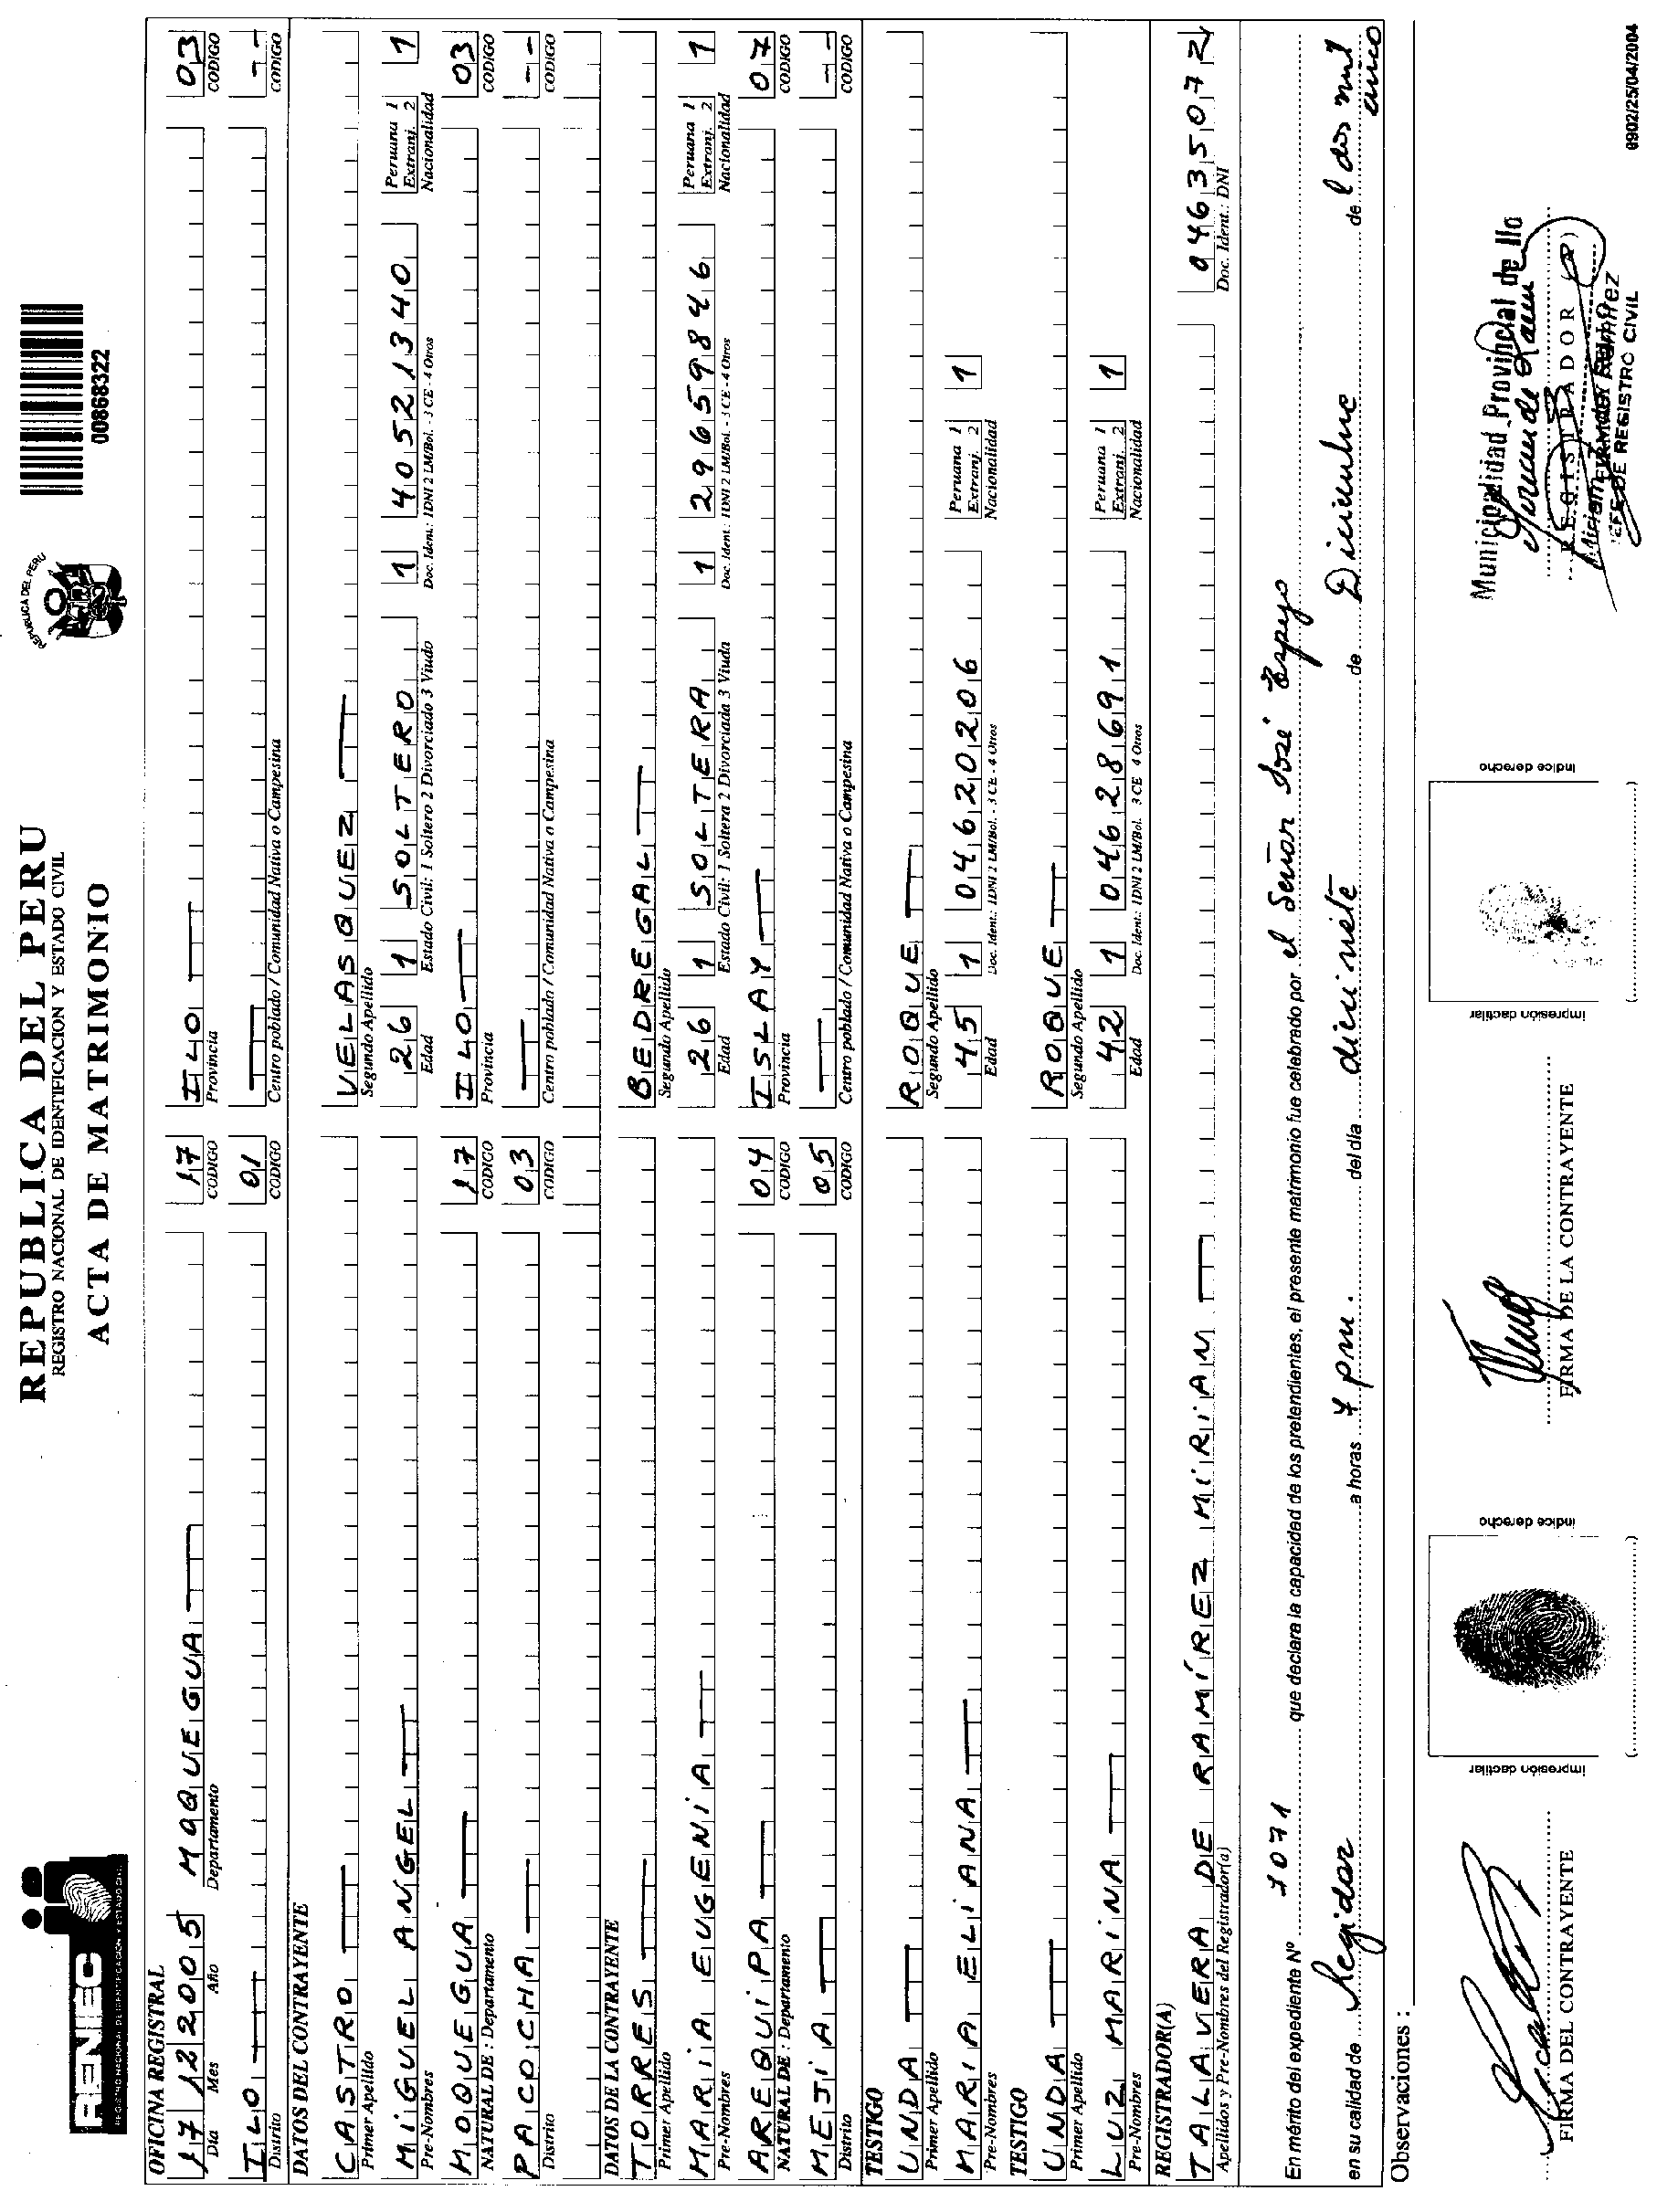 RENIEC
REGISTRO NACIONAL DE IDENTIFICACION Y ESTADO CIVIL
REPUBLICA DEL PERU
REGISTRO NACIONAL DE IDENTIFICACION Y ESTADO CIVIL
ACTA DE MATRIMONIO
REPUBLICA DEL PERU
00868322
OFICINA REGISTRAL
17 12 2005 MOQUEGUA 17 ILO 03
Día Mes Año Departamento CODIGO Provincia CODIGO
ILO 01 --
Distrito CODIGO Centro poblado / Comunidad Nativa o Campesina CODIGO
DATOS DEL CONTRAYENTE
CASTRO VELASQUEZ
Primer Apellido Segundo Apellido
MIGUEL ANGEL 26 1 SOLTERO 1 40521340 Peruana 1 Extranj. 2 1
Pre-Nombres Edad Estado Civil: 1 Soltero 2 Divorciado 3 Viudo Doc. Ident.: 1DNI 2 LM/Bol. - 3 CE - 4 Otros Nacionalidad
MOQUEGUA 17 ILO 03
NATURAL DE : Departamento CODIGO Provincia CODIGO
PACOCHA 03 --
Distrito CODIGO Centro poblado / Comunidad Nativa o Campesina CODIGO
DATOS DE LA CONTRAYENTE
TORRES BEDREGAL
Primer Apellido Segundo Apellido
MARIA EUGENIA 26 1 SOLTERA 1 29659846 Peruana 1 Extranj. 2 1
Pre-Nombres Edad Estado Civil: 1 Soltera 2 Divorciada 3 Viuda Doc. Ident.: 1DNI 2 LM/Bol. - 3 CE - 4 Otros Nacionalidad
AREQUIPA 04 ISLAY 07
NATURAL DE : Departamento CODIGO Provincia CODIGO
MEJIA 05 --
Distrito CODIGO Centro poblado / Comunidad Nativa o Campesina CODIGO
TESTIGO
UNDA ROQUE
Primer Apellido Segundo Apellido
MARIA ELIANA 45 1 04620206 Peruana 1 Extranj. 2 1
Pre-Nombres Edad Doc. Ident.: 1DNI 2 LM/Bol. - 3 CE - 4 Otros Nacionalidad
TESTIGO
UNDA ROQUE
Primer Apellido Segundo Apellido
LUZ MARINA 42 1 04628691 Peruana 1 Extranj. 2 1
Pre-Nombres Edad Doc. Ident.: 1DNI 2 LM/Bol. 3 CE 4 Otros Nacionalidad
REGISTRADOR(A)
TALAVERA DE RAMÍREZ MIRIAN 04635072
Apellidos y Pre-Nombres del Registrador(a) Doc. Ident.: DNI
En mérito del expediente Nº 7071 que declara la capacidad de los pretendientes, el presente matrimonio fue celebrado por el Señor José Espejo
en su calidad de Regidor a horas 7 pm. del día diecisiete de Diciembre de l dos mil cinco
Observaciones :
FIRMA DEL CONTRAYENTE
impresión dactilar
índice derecho
FIRMA DE LA CONTRAYENTE
impresión dactilar
índice derecho
Municipalidad Provincial de Ilo
REGISTRADOR (A)
JEFE DE REGISTRO CIVIL
0902/25/04/2004